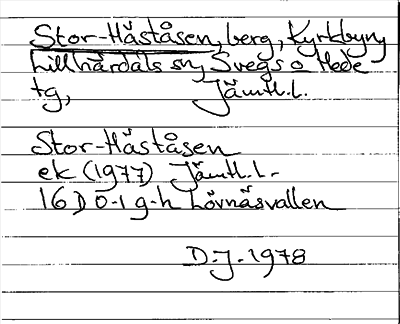 Stor-Håståsen, berg, Kyrkbyn,
Lillhärdals sn, Svegs o Hede
tg, Jämtl.l.
Stor-Håståsen
ek (1977) Jämtl.l.
16D 0-1 g-h Lövnäsvallen
D.J. 1978